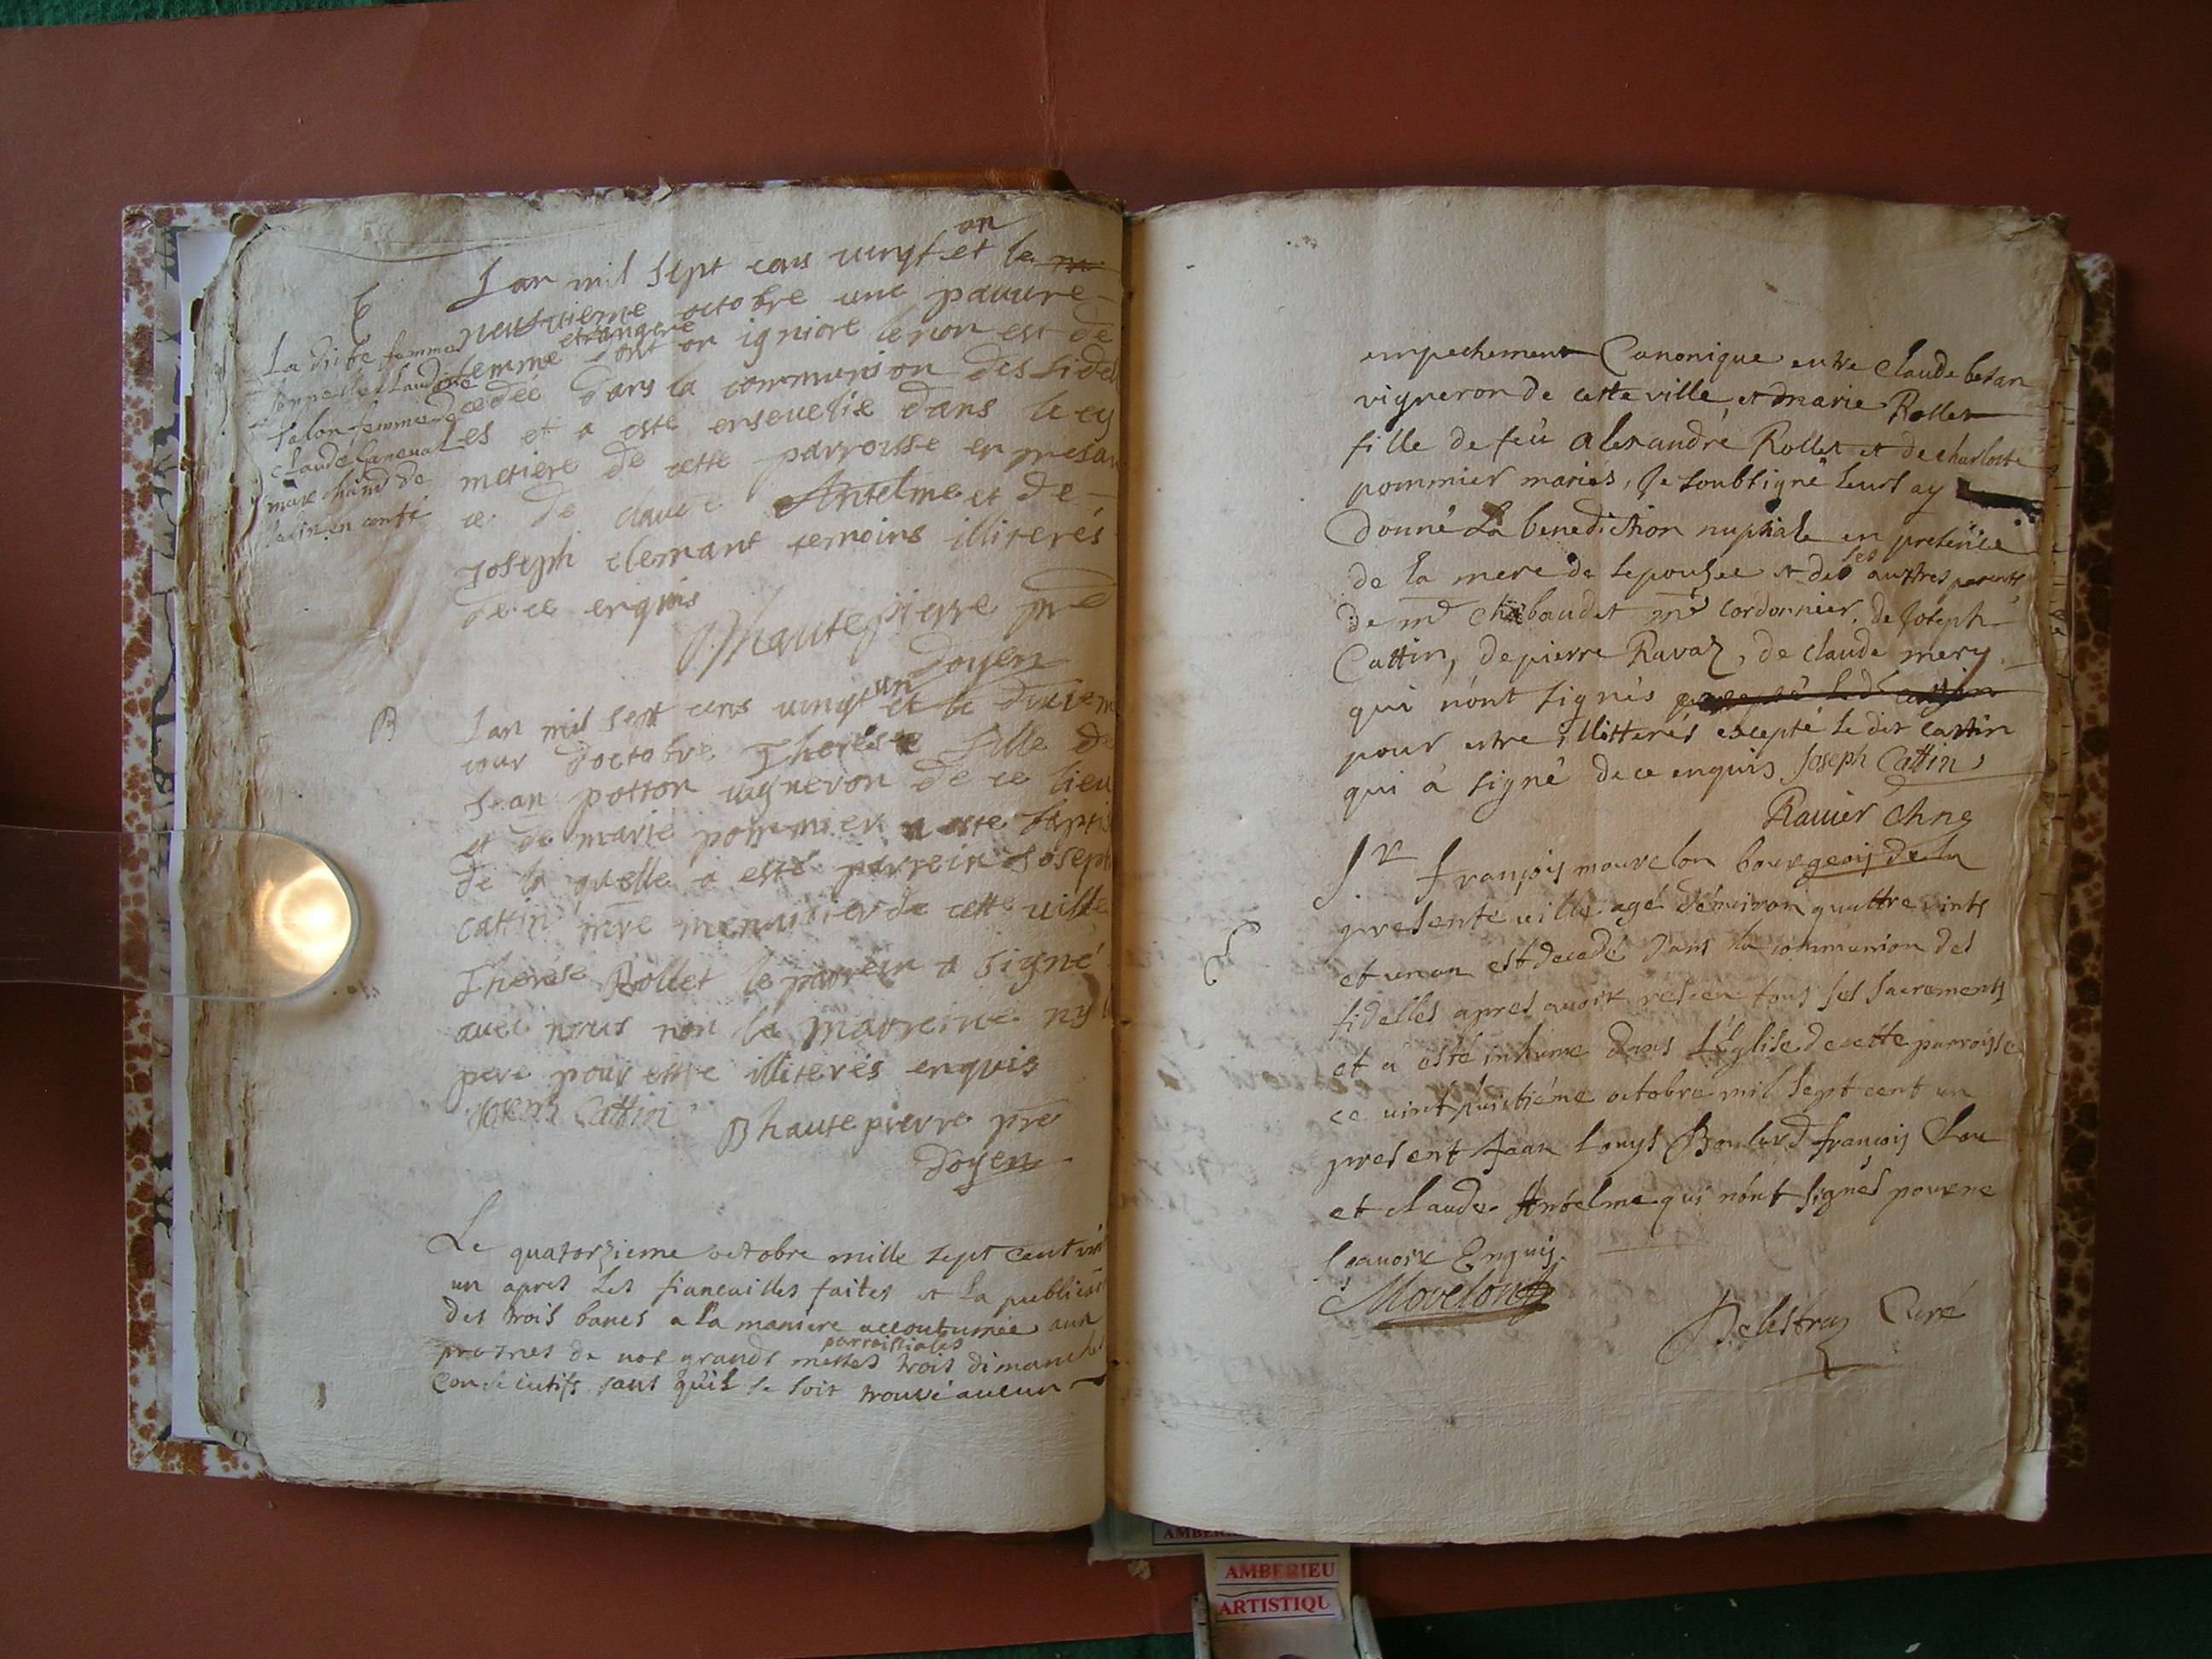 Lan mil sept cens vingt et un le
neufvieme octobre une pauvre
femme etrangere dont on igniore le nom est de
cedée dans la communion des fidel
les et a esté ensevelie dans le cy
metiere de cette parroisse en presan
ce de claude Antelme et de
Joseph clemant temoins illiterés
de ce enquis
B hautepierre pre
doyen
La dite femme
sappelle claudine
salon femme de
claude Caneval
marchand de
B
Lan mil sept cens vingt et un le dixiem
jour doctobre Therese fille de
Jean potton vigneron de ce lieu
et de marie pommier a esté baptis
de la quelle a esté parrein Joseph
cattin mre menuisier de cette ville
Therese Rollet le parrein a signé
avec nous non la marreine ny le
pere pour estre illiterés enquis
Joseph Cattin
B hautepierre pre
doyen
Le quatorzieme octobre mille sept cent vint
un apres les fiancailles faites et la publicat
des trois bancs a la maniere accoutumée aux
prosnes de nos grandes messes parroissiales trois dimanches
consecutifs sans qu'il se soit trouvé aucun
empechement Canonique entre Claude betan
vigneron de cette ville et marie Rollet
fille de feu alexandre Rollet et de charlotte
pommier mariés, Je soubsigné leurs ay
donné La benediction nuptiale en presence
de la mere de lepousee et de ses auttres parents
de mre chabaudet mre cordonnier, de Joseph
Cattin, de pierre Ravaz, de claude mery
qui n'ont signés
pour estre illitterés excepté le dit cattin
qui à signé de ce enquis Joseph Cattin
Ravier Chne
Sr françois mourelon bourgeois de la
presente ville agé d'émviron quattre vints
et un an est decedé dans la communion des
fidelles apres avoir reseu tous ses sacrements
et a esté inhumé dans l'église de cette parroisse
ce vint huictiéme octobre mil sept cent un
present Jean Louys françois
et claude Antelme qui n'ont signés pour ne
scavoir Enquis.
Movelon
Delestraz Curé
AMBERIEU
ARTISTIQU